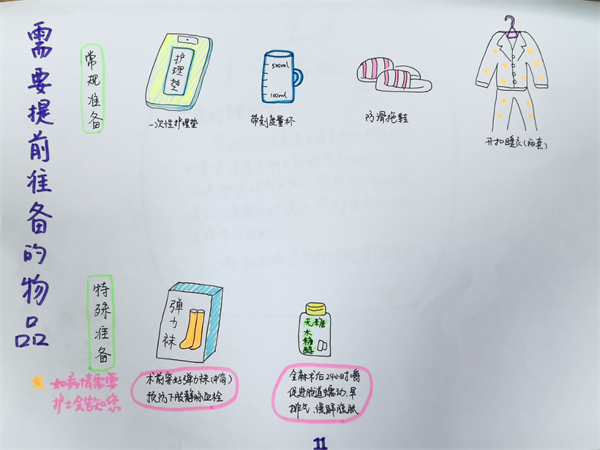 需要提前准备的物品
常规准备
护理垫
一次性护理垫
500ml
100ml
带刻度量杯
防滑拖鞋
开扣睡衣(两套)
特殊准备
如病情需要
护士会告知您
弹力袜
术前穿好弹力袜(中筒)
预防下肢静脉血栓
无糖
木糖醇
全麻术后24小时嚼
促进肠道蠕动,早
排气 缓解腹胀
11